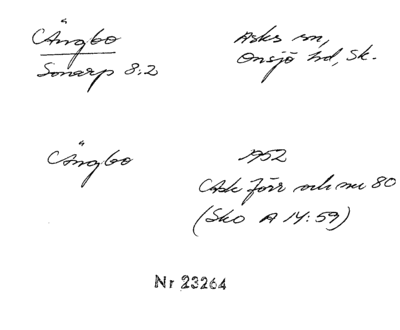 Ängbo
Sonarp 8:2
Asks sn,
Onsjö hd, Sk.
Ängbo
1952
Ask förr och nu 80
(Sko A 14:59)
Nr 23264